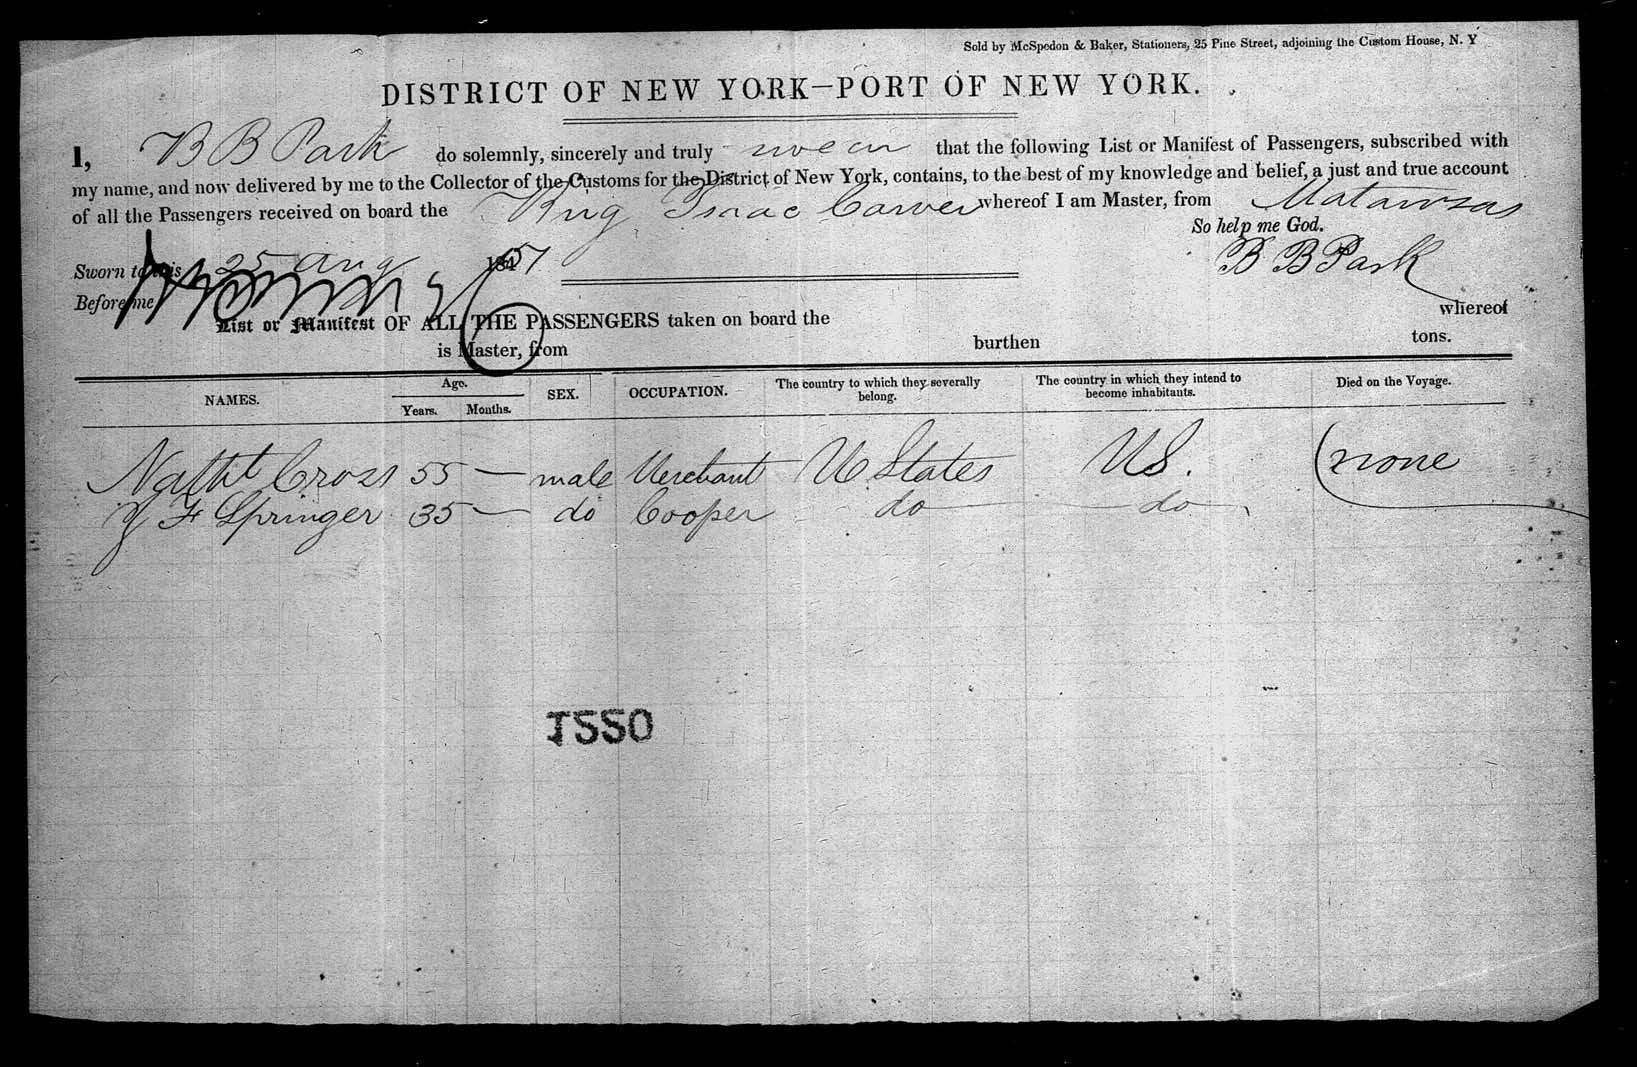 Sold by McSpedon & Baker, Stationers, 25 Pine Street, adjoining the Custom House, N. Y
DISTRICT OF NEW YORK—PORT OF NEW YORK.
I, B B Park do solemnly, sincerely and truly swear that the following List or Manifest of Passengers, subscribed with
my name, and now delivered by me to the Collector of the Customs for the District of New York, contains, to the best of my knowledge and belief, a just and true account
of all the Passengers received on board the Brig Isaac Carver whereof I am Master, from Matanzas
So help me God.
Sworn to this 25 Aug 1851 B B Park
Before me
List or Manifest OF ALL THE PASSENGERS taken on board the whereof
is Master, from burthen tons.
NAMES. Age. Years. Months. SEX. OCCUPATION. The country to which they severally belong. The country in which they intend to become inhabitants. Died on the Voyage.
Nathl Cross 55 — male Merchant U States U S. none
F Springer 35 — do Cooper do do
1550